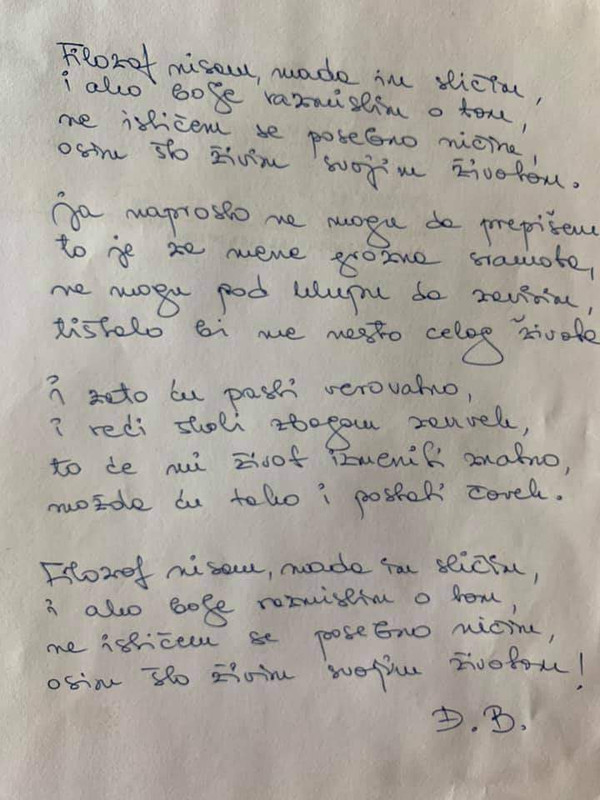 Filozof nisam, mada im sličim,
i ako bolje razmislim o tom,
ne ističem se posebno ničim,
osim što živim svojim životom.
ja naprosto ne mogu da prepišem
to je za mene grozna sramota,
ne mogu pod klupu da zavirim,
tištalo bi me nešto celog života
i zato ću pasti verovatno,
i reći školi zbogom zauvek,
to će mi život izmeniti znatno,
možda ću tako i postati čovek.
Filozof nisam, mada im sličim,
i ako bolje razmislim o tom,
ne ističem se posebno ničim,
osim što živim svojim životom!
D.B.